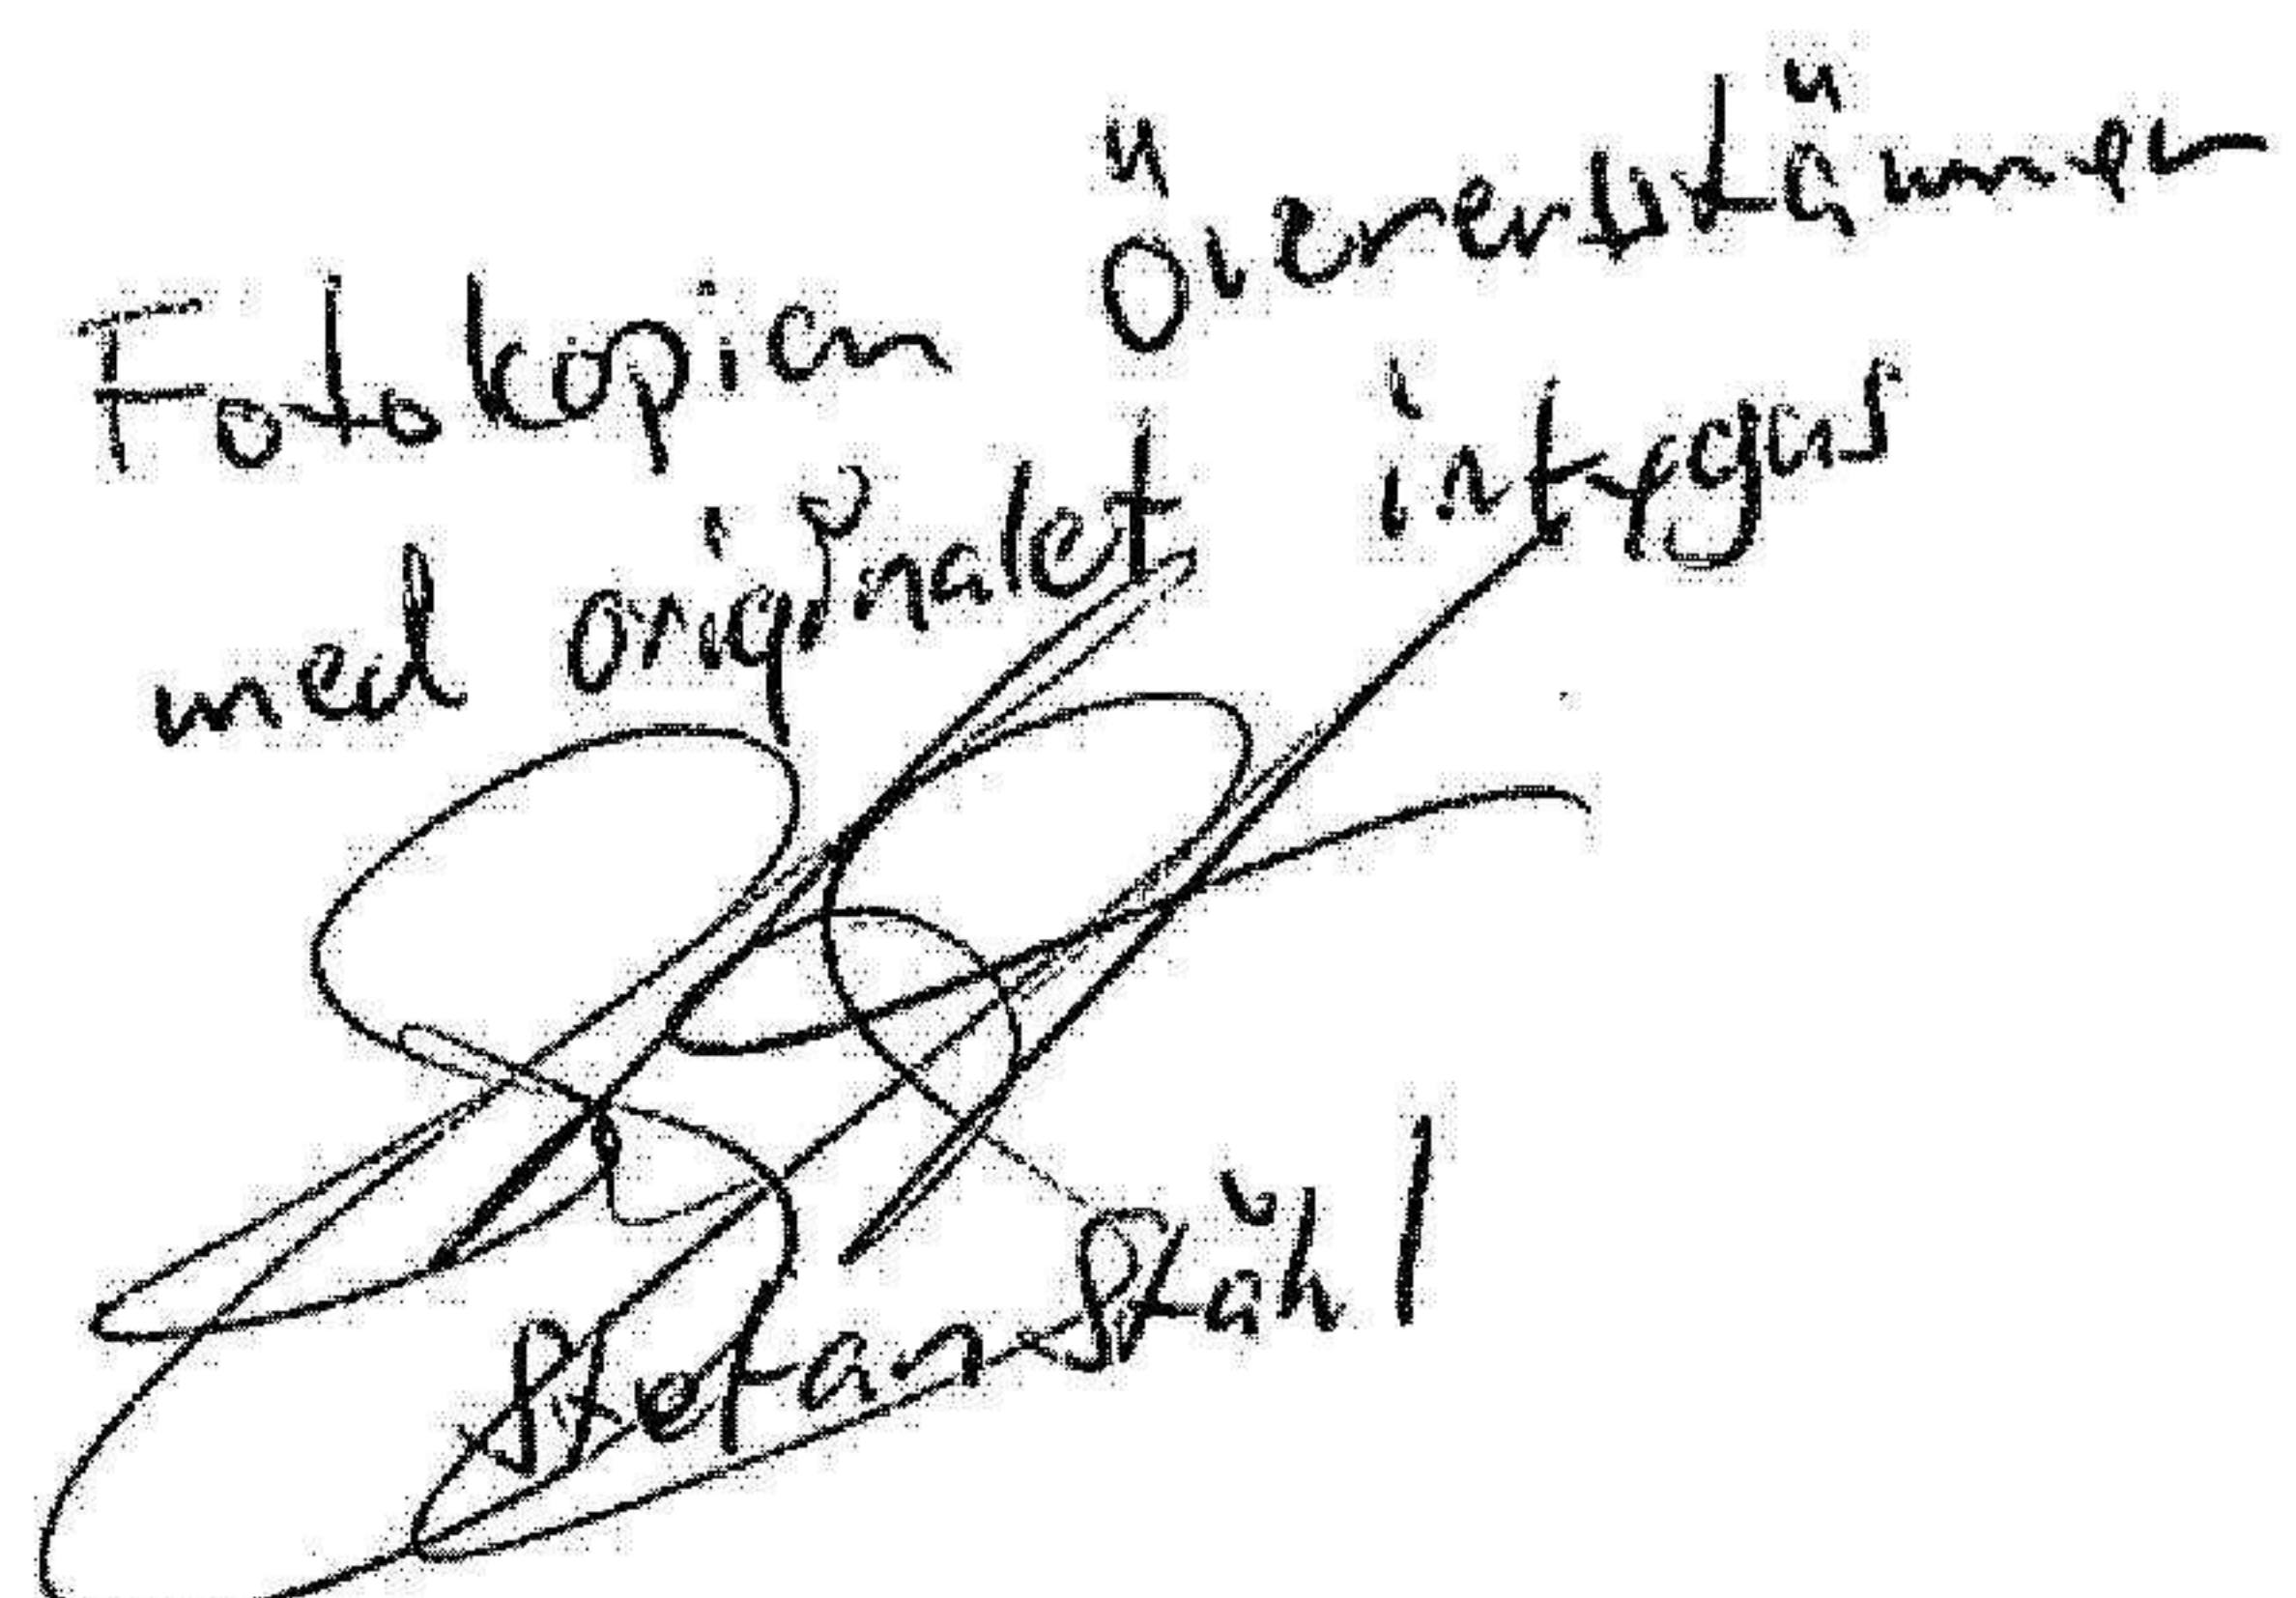 Fotokopien överenstämmer
med originalet intygas
Stefan Ståhl